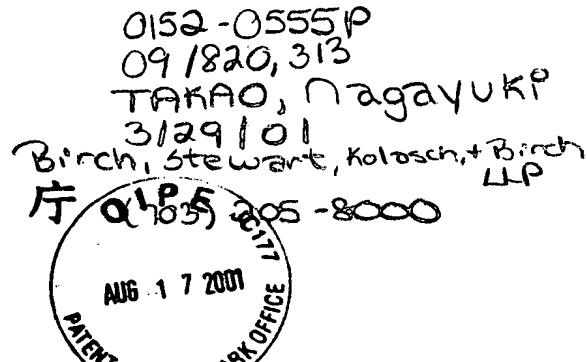 0152-0555P
09/820,313
TAKAO, Nagayuki
3/29/01
Birch, Stewart, Kolasch, + Birch
LLP
庁 (703) 205-8000
OIPE JC177
AUG 17 2001
PATENT
OFFICE